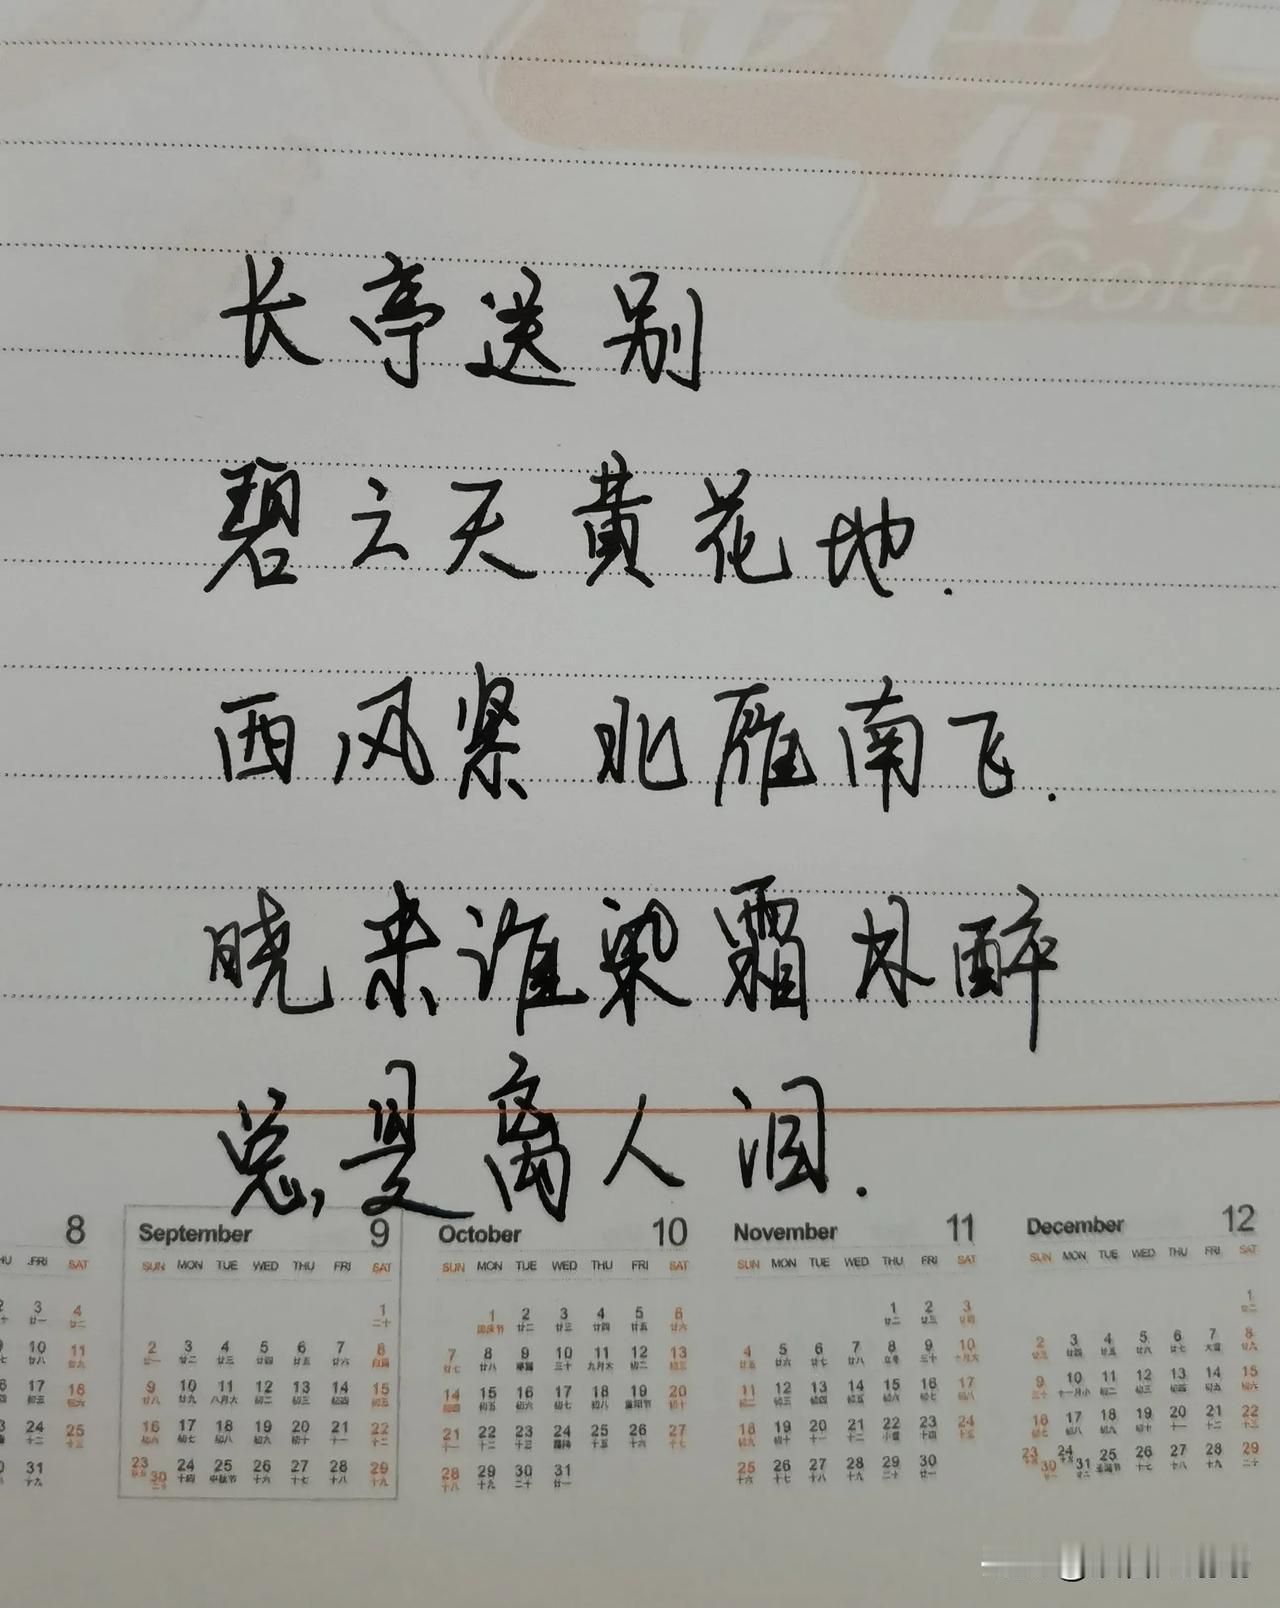 俱乐
Gold
长亭送别
碧云天黄花地.
西风紧 北雁南飞.
晓来谁染霜林醉
总是离人泪.
8 September 9 October 10 November 11 December 12
FRI SAT SUN MON TUE WED THU FRI SAT SUN MON TUE WED THU FRI SAT SUN MON TUE WED THU FRI SAT SUN MON TUE WED THU FRI SAT
3 4 1 1 2 3 4 5 6 1 2 3 1
10 11 2 3 4 5 6 7 8 7 8 9 10 11 12 13 4 5 6 7 8 9 10 2 3 4 5 6 7 8
17 18 9 10 11 12 13 14 15 14 15 16 17 18 19 20 11 12 13 14 15 16 17 9 10 11 12 13 14 15
24 25 16 17 18 19 20 21 22 21 22 23 24 25 26 27 18 19 20 21 22 23 24 16 17 18 19 20 21 22
31 23 30 24 25 26 27 28 29 28 29 30 31 25 26 27 28 29 30 23 30 24 31 25 26 27 28 29